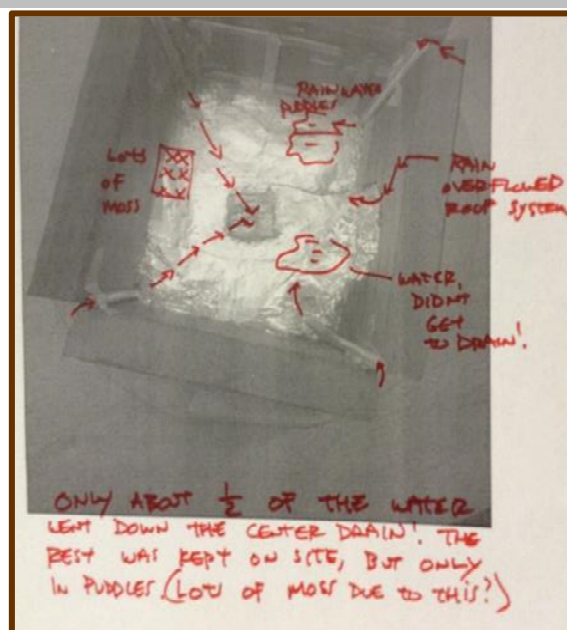 RAINWATER
PUDDLES
LOTS
OF
MOSS
RAIN
OVERFLOWED
ROOF SYSTEM
WATER
DIDNT
GET
TO DRAIN!
ONLY ABOUT 1/2 OF THE WATER
WENT DOWN THE CENTER DRAIN! THE
REST WAS KEPT ON SITE, BUT ONLY
IN PUDDLES. (LOTS OF MOSS DUE TO THIS?)